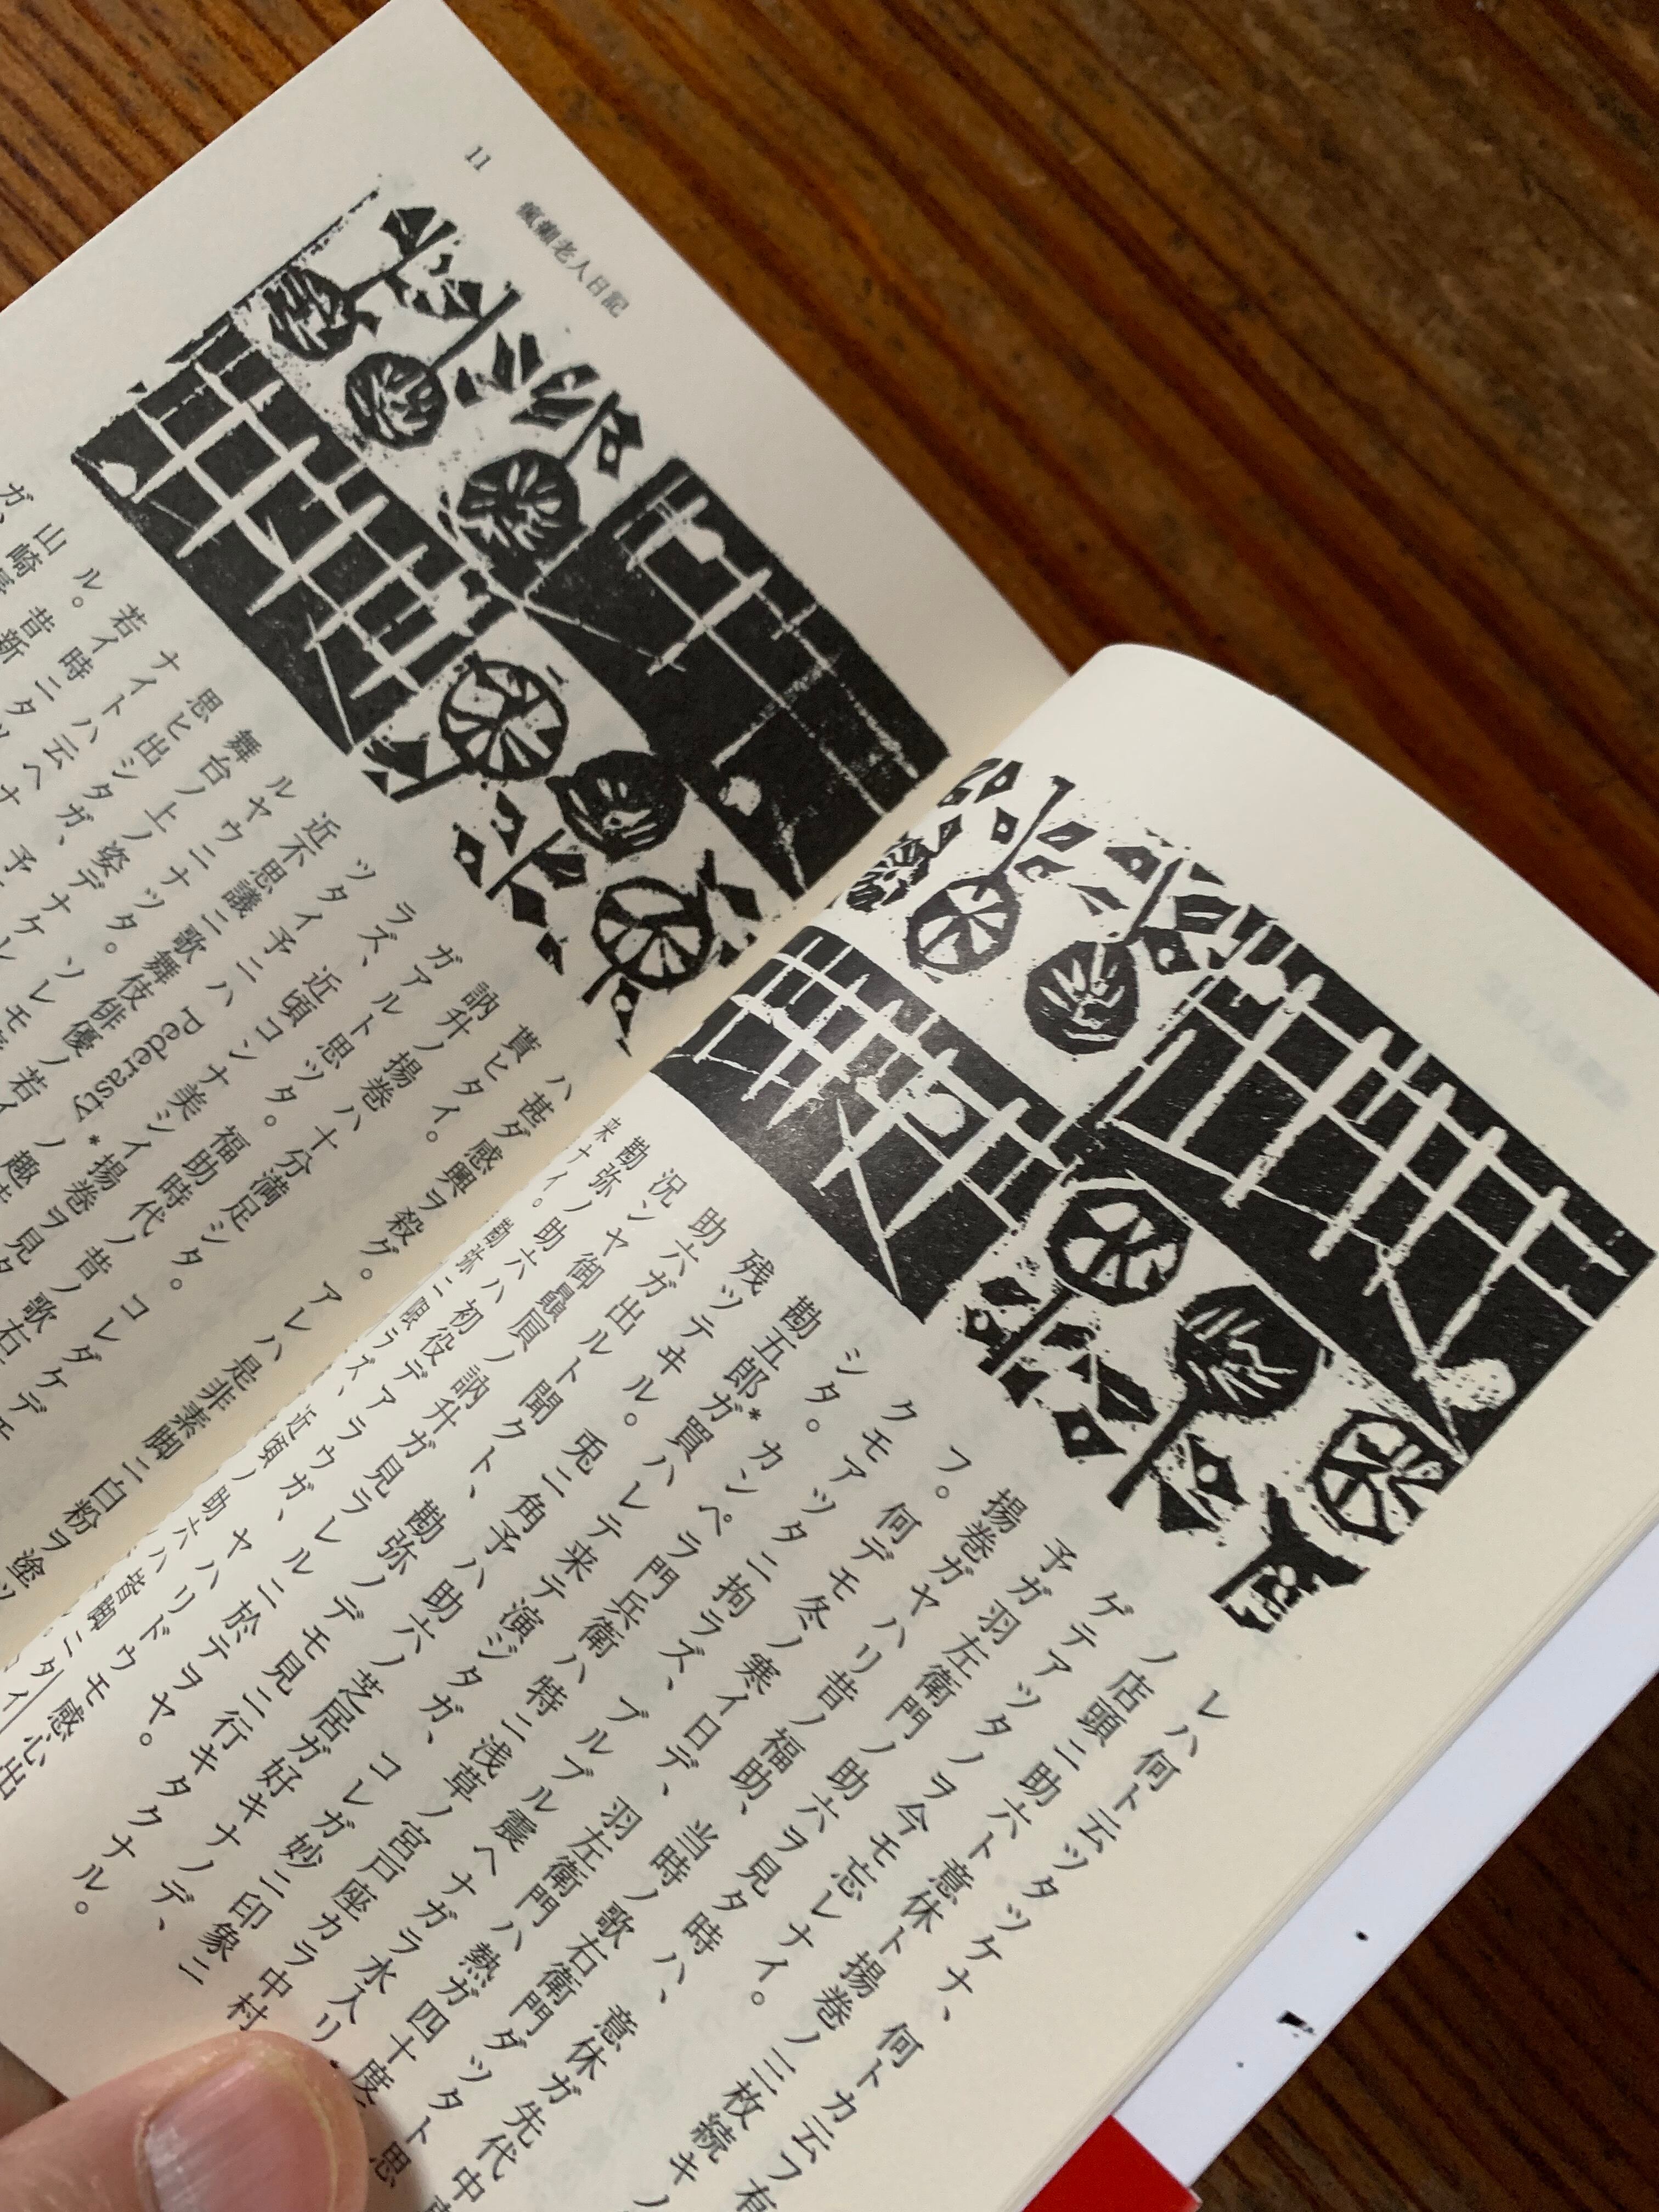 レハ何ト云ツタツケナ、何トカ云フ有
ノ店頭ニ助六ト意休ト揚巻ノ三枚続キノ
ゲテアツタノヲ今モ忘レナイ。
予ガ羽左衛門ノ助六ヲ見タ時ハ、意休ガ先代中
揚巻ガヤハリ昔ノ福助、当時ノ歌右衛門ダツタト思
フ。何デモ冬ノ寒イ日デ、羽左衛門ハ熱ガ四十度
クモアツタニ拘ラズ、ブルブル震ヘナガラ水入リ
シタ。カンペラ門兵衛ハ特ニ浅草ノ宮戸座カラ中村
勘五郎*ガ買ハレテ来テ演ジタガ、コレガ妙ニ印象ニ
残ツテヰル。兎ニ角予ハ助六ノ芝居ガ好キナノデ、
助六ガ出ルト聞クト、勘弥ノデモ見ニ行キタクナル。
況ンヤ御贔屓ノ訥升ガ見ラレルニ於テヲヤ。
勘弥ノ助六ハ初役デアラウガ、ヤハリドウモ感心出
来ナイ。勘弥ニ限ラズ、近頃ノ助六ハ皆脚ニタイ
11
瘋癲老人日記
ハ甚ダ感興ヲ殺グ。アレハ是非素脚ニ白粉ヲ塗ツ
貰ヒタイ。
訥升ノ揚巻ハ十分満足シタ。コレダケデモ
ガアルト思ツタ。福助時代ノ昔ノ歌右
ラズ、近頃コンナ美シイ揚巻ヲ見タ
ツタイ予ニハ Pederasty*ノ趣
近不思議ニ歌舞伎俳優ノ若イ
ルヤウニナツタ。ソレモ
舞台ノ上ノ姿デナケレ
思ヒ出シタガ、予
ナイトハ云ヘナ
若イ時ニ
ル。昔新
山崎
ガ、